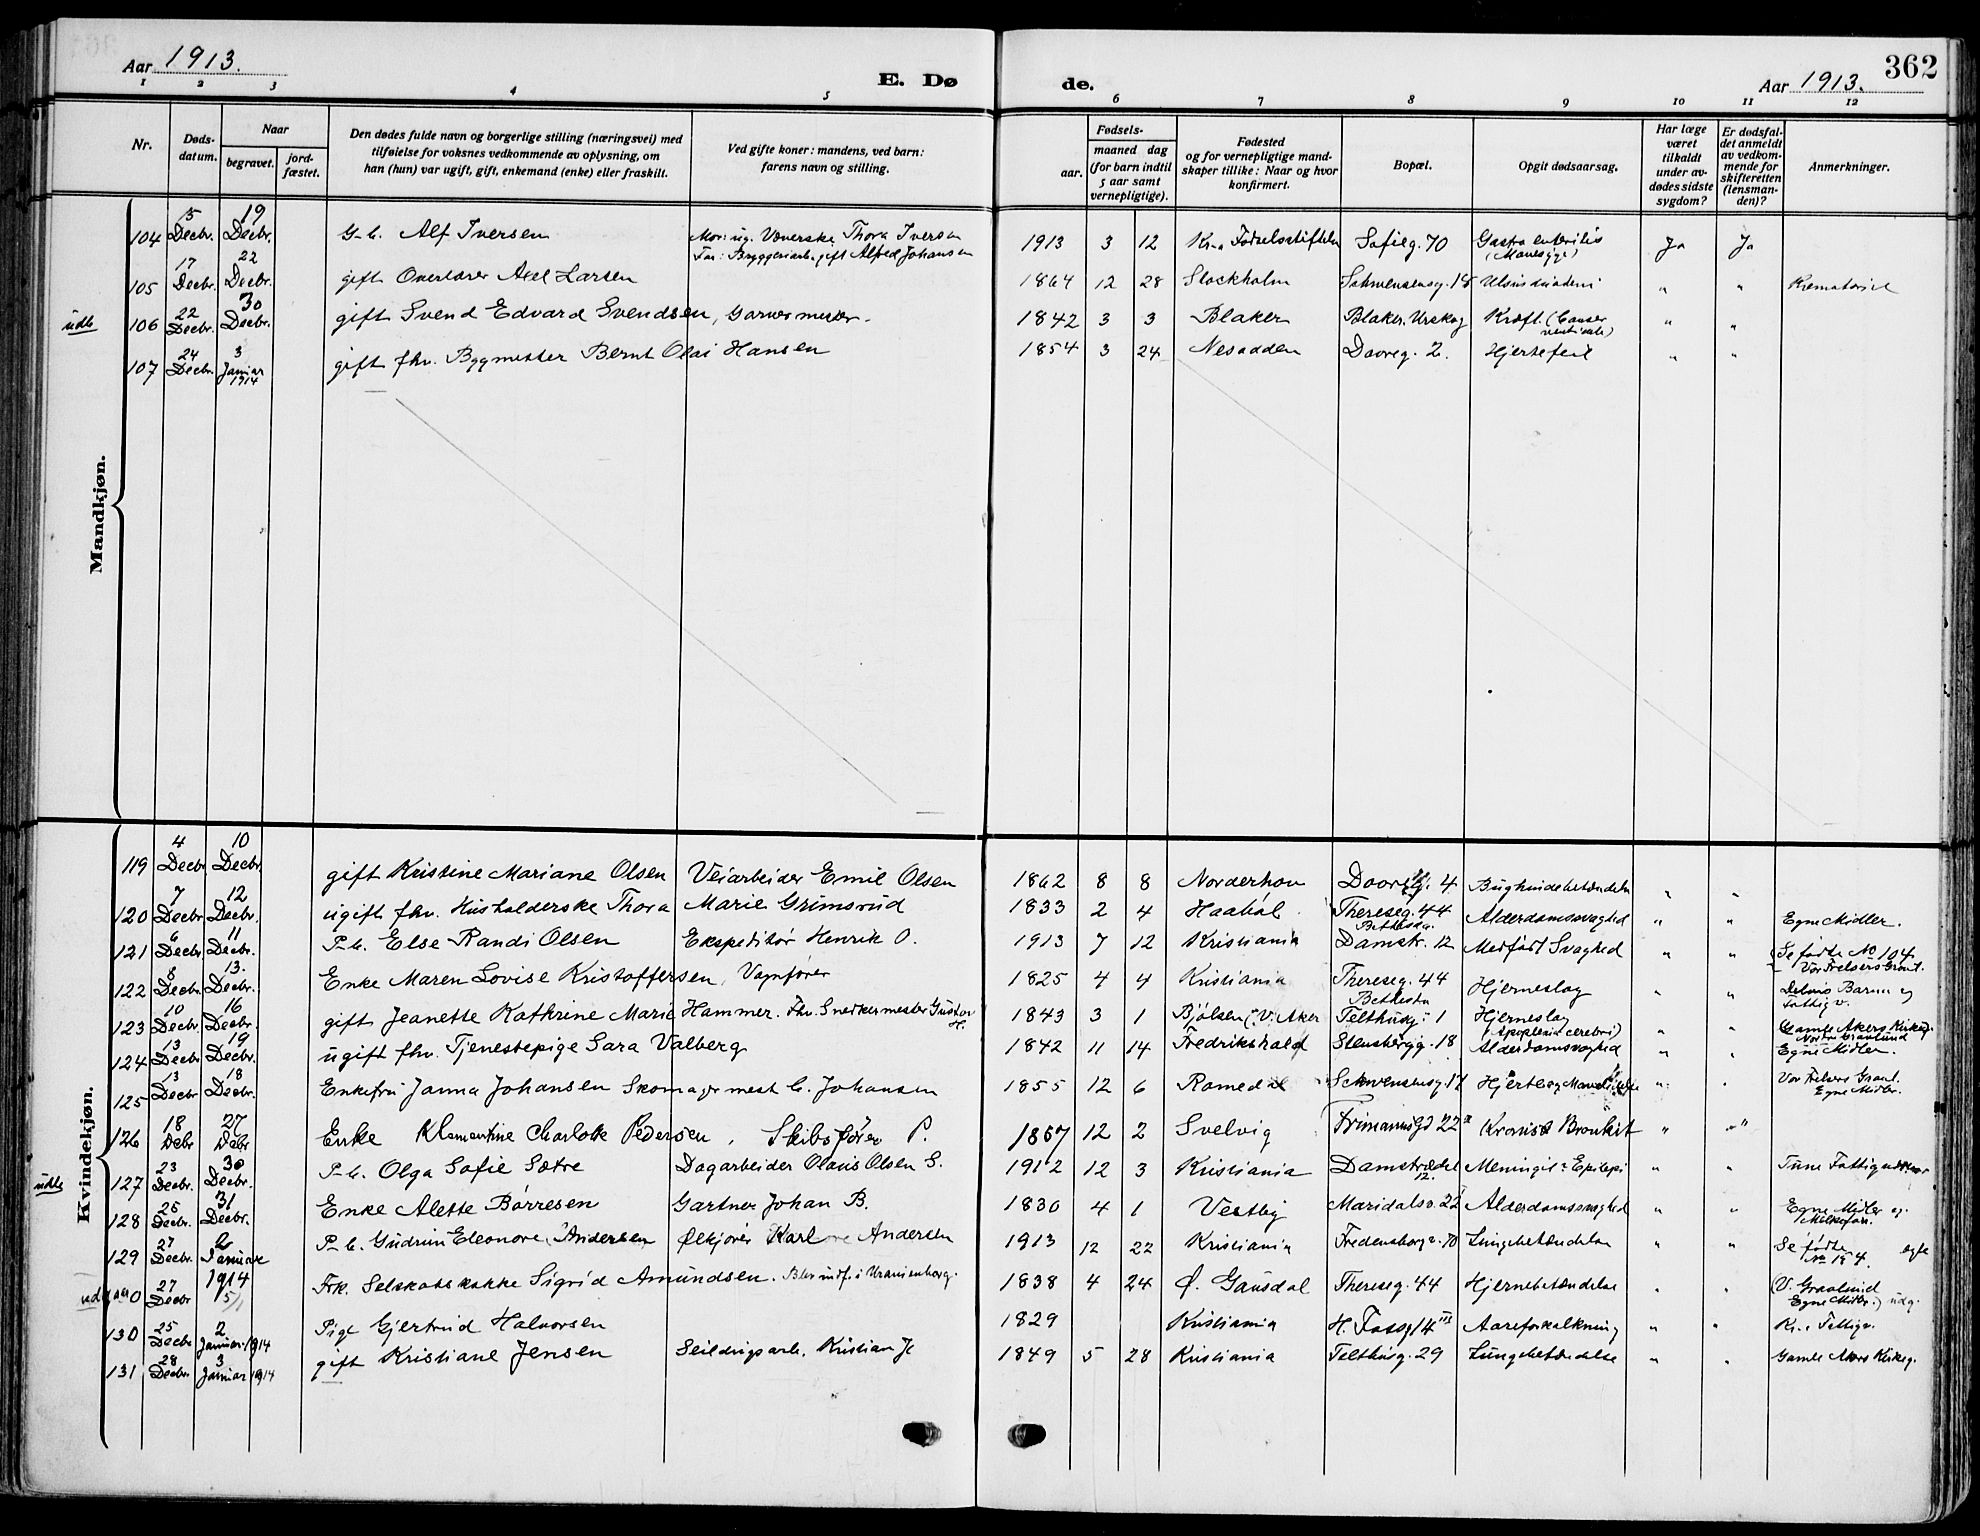 Aar 1913.
E. Dø
de.
Aar 1913.
362
1 2 3 4 5 6 7 8 9 10 11 12
Nr.
Døds-datum.
Naar
begravet.
jord-fæstet.
Den dødes fulde navn og borgerlige stilling (næringsvei) med
tilføielse for voksnes vedkommende av oplysning, om
han (hun) var ugift, gift, enkemand (enke) eller fraskilt.
Ved gifte koner: mandens, ved barn:
farens navn og stilling.
Fødsels-
aar. maaned dag
(for barn indtil
5 aar samt
vernepligtige).
Fødested
og for vernepligtige mand-
skaper tillike: Naar og hvor
konfirmert.
Bopæl.
Opgit dødsaarsag.
Har læge
været
tilkaldt
under av-
dødes sidste
sygdom?
Er dødsfal-
det anmeldt
av vedkom-
mende for
skifteretten
(lensman-
den)?
Anmerkninger.
Mandkjøn.
104 15 Decbr. 19 Decbr. G-b. Alf Iversen Mor: ug. Væverske Thora Iversen
Far: Bryggeriarb. gift Alfred Johansen 1913 3 12 Kr.a Fødselsstiftelse Sofieg. 70 Gastro enteritis (Mavesyge) Ja Ja
105 17 Decbr. 22 Decbr. gift Overlærer Axel Larsen 1864 12 28 Stockholm Schwensensg. 15 " " Krematoriet
udb 106 22 Decbr. 30 Decbr. gift Svend Edvard Svendsen, Garvermester. 1842 3 3 Blaker Blaker, Urskog Kræft. (Cancer ventriculi) " "
107 24 Decbr. 3 Januar 1914 gift fhv. Bygmester Bernt Olai Hansen 1854 3 24 Nesodden Dovreg. 2. Hjertefeil " "
Kvindekjøn.
119 4 Decbr 10 Decbr. gift Kristine Mariane Olsen Veiarbeider Emil Olsen 1862 8 8 Norderhov Dovreg. 4 Bughindebetændelse " "
120 7 Decbr. 12 Decbr. ugift fhv. Husholderske Thora Marie Grimsrud 1833 2 4 Haabøl Thereseg. 44 Bethesda. Alderdomssvaghed " " Egne Midler.
121 6 Decbr. 11 Decbr. P-b. Else Randi Olsen Ekspeditør Henrik O. 1913 7 12 Kristiania Damstr. 12 Medfødt Svaghed " " Se fødte No 104. Vor Frelsers Gravl.
122 8 Decbr. 13. Decbr. Enke Maren Lovise Kristoffersen, Vognfører 1825 4 4 Kristiania Thereseg. 44 Bethesda Hjerneslag " " Delvis Barum og Fattigv.
123 10 Decbr. 16 Decbr. gift Jeanette Kathrine Marie Hammer. Fhv. Snedkermester Gustav H. 1843 3 1 Bjølsen i V. Aker Telthusg. 1 Hjerneslag (Apoplexia cerebri) " " Gamle Akers Kirkeg.
124 13 Decbr. 19 Decbr. ugift fhv. Tjenestepige Sara Valberg 1842 11 14 Fredrikshald Stensbergg. 18 Alderdomsvaghed " " Nordre Gravlund Egne Midler.
125 13 Decbr 18 Decbr. Enkefru Janna Johansen Skomagermest C. Johansen 1855 12 6 Romedal Schwensensg 17 " " Vor Frelsers Gravl. Egne Midler.
126 18 Debr 27 Debr Enke Klementine Charlotte Pedersen, Skibsfører P. 1867 12 2 Svelvig Frimannsgd 22 II Kronisk Bronkit " "
udb 127 23 Decbr. 30 Decbr. P-b. Olga Sofie Sætre Dagarbeider Olaus Olsen S. 1912 12 3 Kristiania Damstrædet 12. Meningit: Epilepsi " " Tune Fattigvæsen
128 26 Decbr. 31 Decbr. Enke Alette Børresen Gartner Johan B. 1830 4 1 Vestby Maridalsv. 22 Alderdomssvaghed " " Egne Midler og
129 27 Decbr. 2 Januar 1914 P-b. Gudrun Eleonore Andersen Ølkjører Karl Andersen 1913 12 22 Kristiania Fredensborgv. 70 Lungebetændelse " " Se fødte No 184. egte
udgaar 0 27 Decbr 5/1 Frk. Selskabskokke Sigrid Amundsen. Blev indf. i Uranienborg. 1838 4 24 Ø. Gausdal Thereseg. 44 Hjernebetændelse " " (V. Gravlund Egne Midler.) udg.
130 25 Decbr 2 Januar 1914 Pige Gjertrud Halvorsen 1829 Kristiania H. Fossg 14 III Aareforkalkning " " Kr.a Fattigv.
131 28 Decbr. 3 Januar 1914 gift Kristiane Jensen Seildugsarb. Kristian J. 1849 5 28 Kristiania Telthusg. 29 Lungebetændelse " " Gamle Akers Kirkeg.